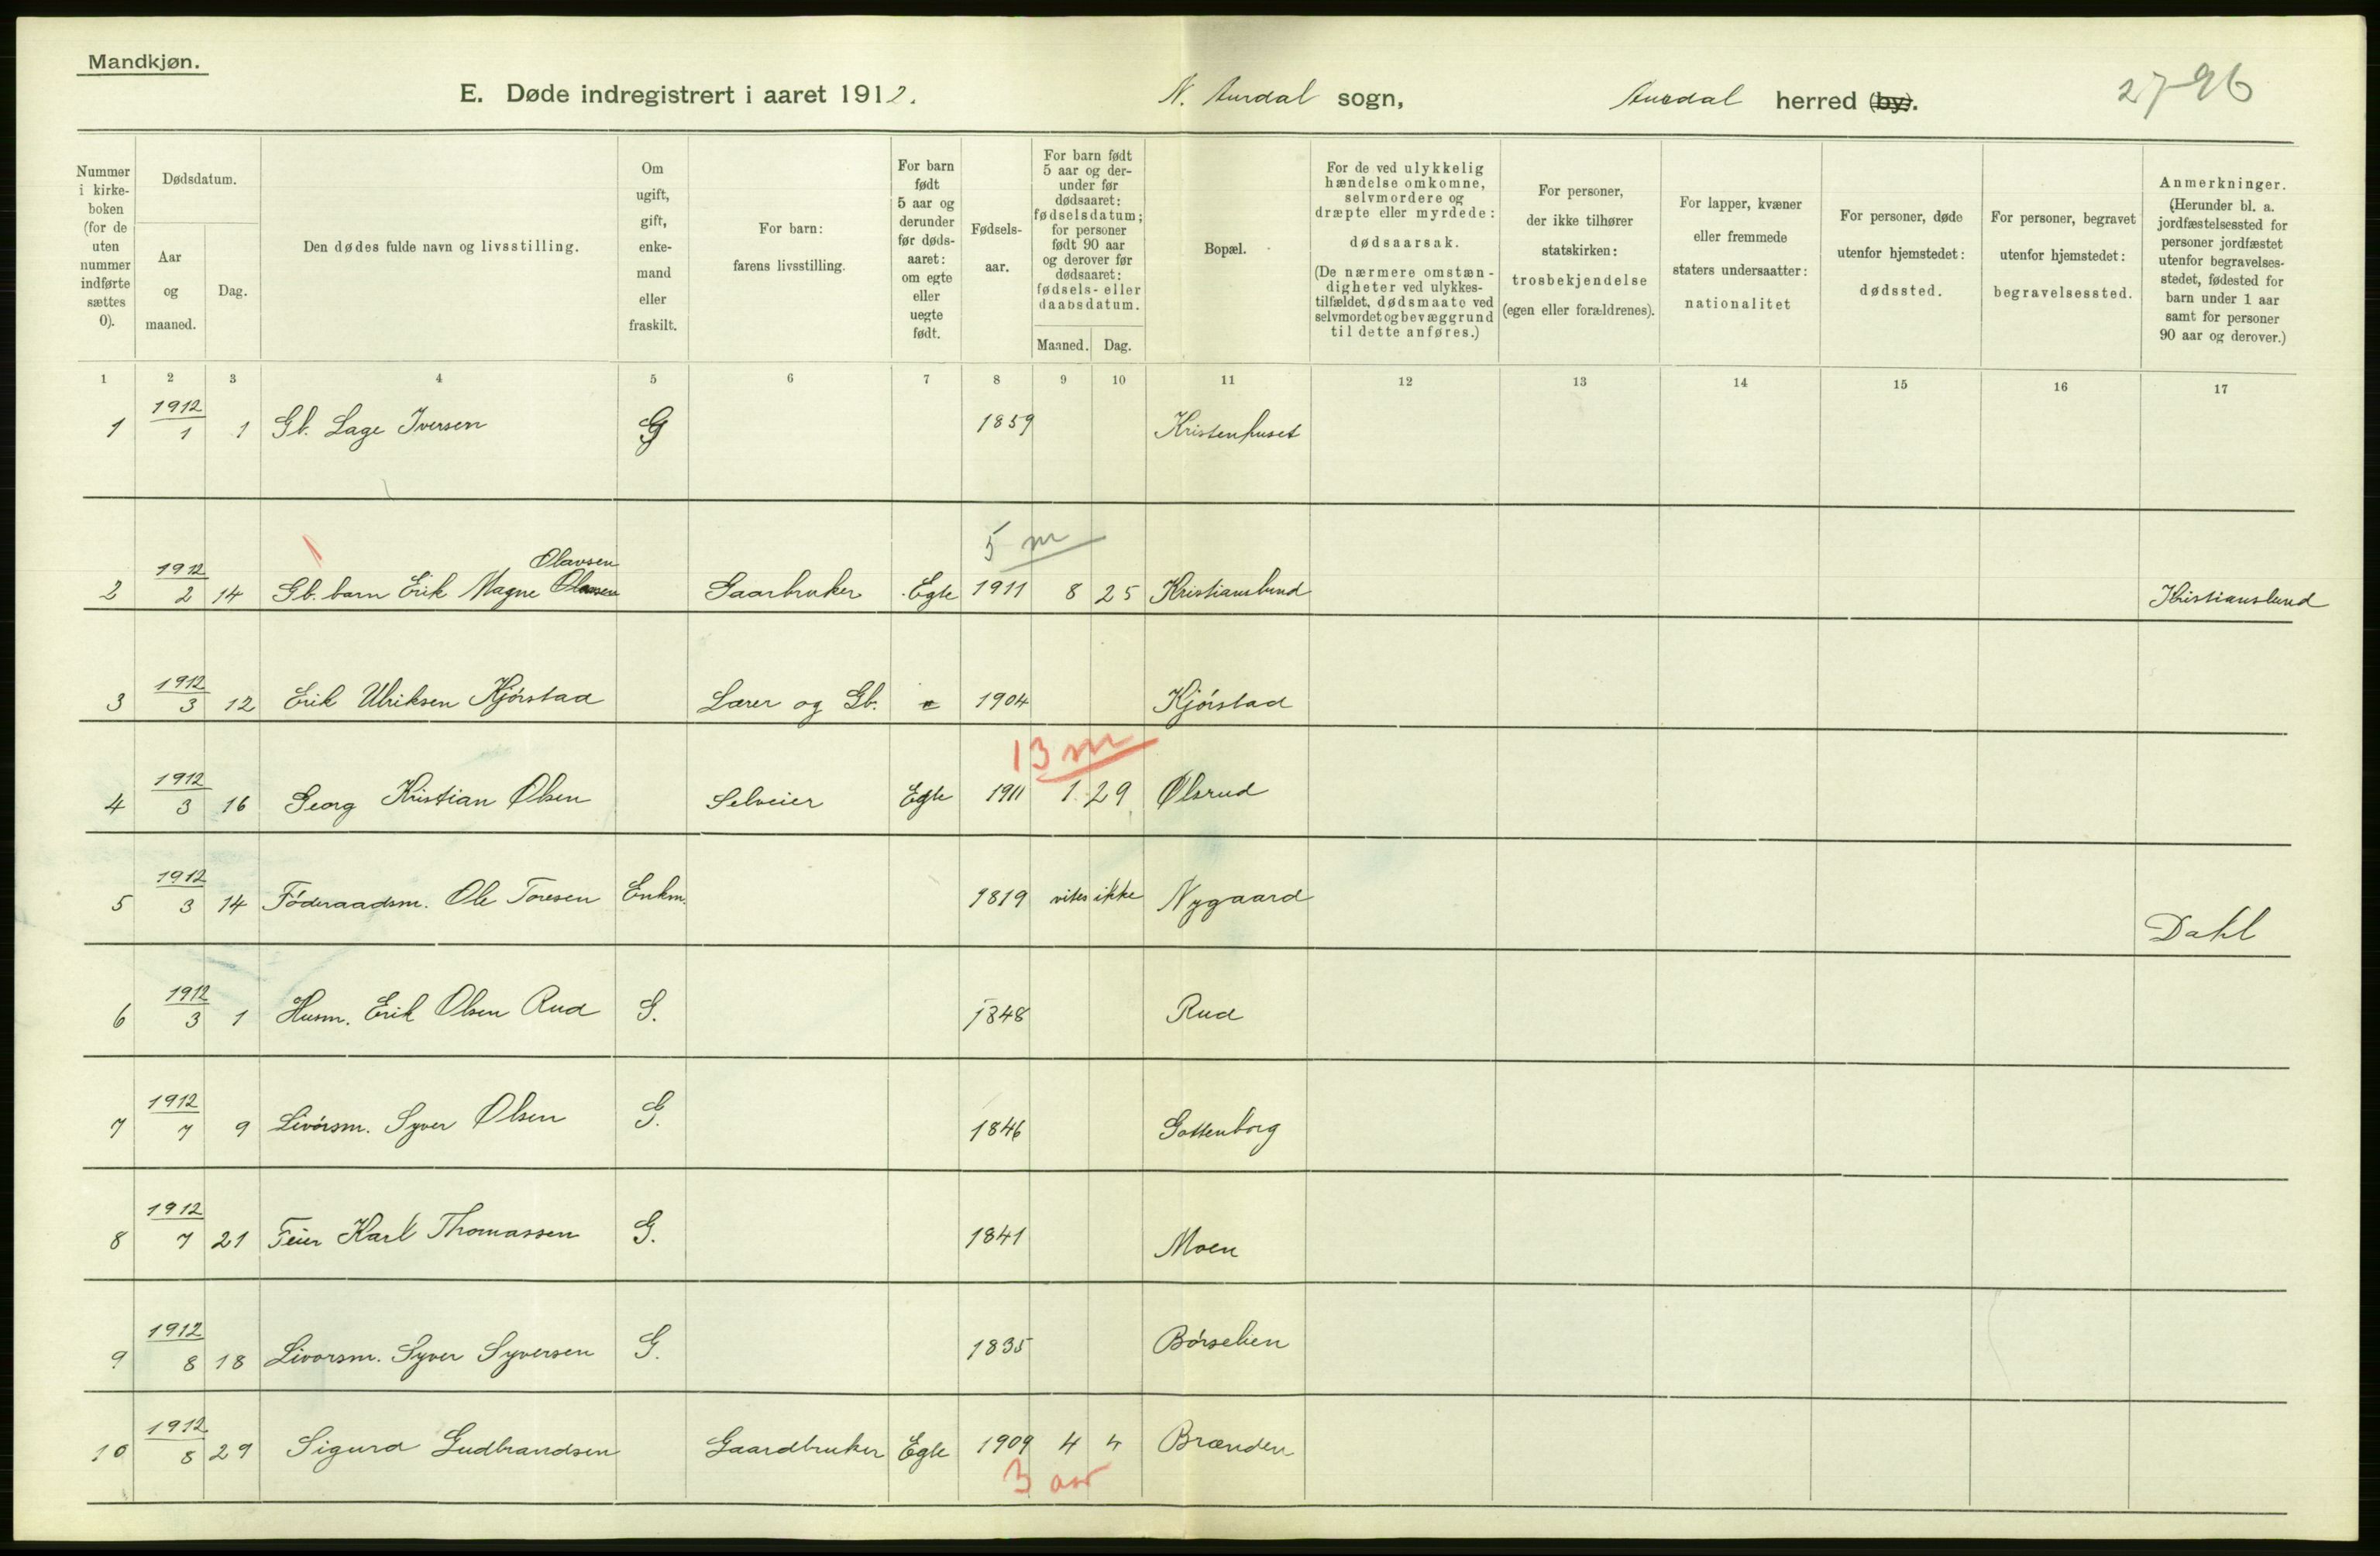 Mandkjøn.
E. Døde indregistrert i aaret 1912. N. Aurdal sogn, Aurdal herred (by).
27-96
Nummer i kirke-boken (for de uten nummer indførte sættes 0).
Dødsdatum.
Aar og maaned.
Dag.
Den dødes fulde navn og livsstilling.
Om ugift, gift, enke-mand eller fraskilt.
For barn: farens livsstilling.
For barn født 5 aar og derunder før døds-aaret: om egte eller uegte født.
Fødsels-aar.
For barn født 5 aar og der-under før dødsaaret: fødselsdatum; for personer født 90 aar og derover før dødsaaret: fødsels- eller daabsdatum.
Maaned.
Dag.
Bopæl.
For de ved ulykkelig hændelse omkomne, selvmordere og dræpte eller myrdede: dødsaarsak. (De nærmere omstæn-digheter ved ulykkes-tilfældet, dødsmaate ved selvmordet og bevæggrund til dette anføres.)
For personer, der ikke tilhører statskirken: trosbekjendelse (egen eller forældrenes).
For lapper, kvæner eller fremmede staters undersaatter: nationalitet
For personer, døde utenfor hjemstedet: dødssted.
For personer, begravet utenfor hjemstedet: begravelsessted.
Anmerkninger. (Herunder bl. a. jordfæstelsessted for personer jordfæstet utenfor begravelses-stedet, fødested for barn under 1 aar samt for personer 90 aar og derover.)
1 2 3 4 5 6 7 8 9 10 11 12 13 14 15 16 17
1 1912 1 1 Gb. Lage Iversen G 1859 Kristenhuset
5 m
Olavsen
2 1912 2 14 Gb. barn Erik Magne Olausen Gaarbruker Egte 1911 8 25 Kristianslund Kristianslund
3 1912 3 12 Erik Ulriksen Kjörstad Lærer og Gb. e 1904 Kjörstad
13 m
4 1912 3 16 Georg Kristian Olsen Selveier Egte 1911 1 29 Ølsrud
5 1912 3 14 Föderaadsm. Ole Toresen Enkm. 1819 vites ikke Nygaard Dahl
6 1912 3 1 Husm. Erik Olsen Rud G. 1848 Rud
7 1912 7 9 Livörsm. Syver Olsen G. 1846 Gottenborg
8 1912 7 21 Feier Karl Thomassen G. 1841 Moen
9 1912 8 18 Livorsm. Syver Syversen G. 1835 Börselien
10 1912 8 29 Sigurd Gudbrandsen Gaardbruker Egte 1909 4 4 Brænden
3 aar